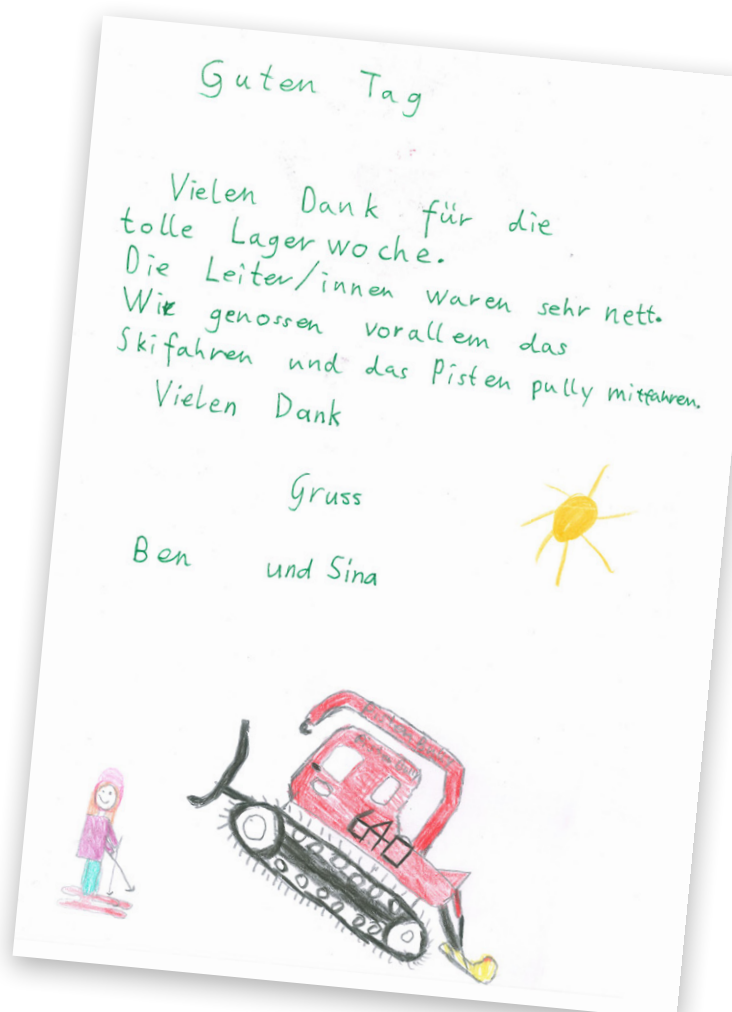 Guten Tag
Vielen Dank für die
tolle Lagerwoche.
Die Leiter/innen waren sehr nett.
Wir genossen vorallem das
Skifahren und das Pisten pully mitfahren.
Vielen Dank
Gruss
Ben und Sina
640